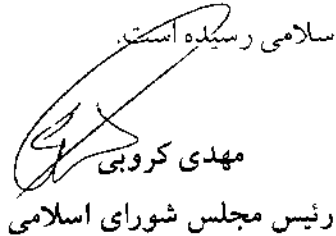 سلامی رسیده است.
مهدی کروبی
رئیس مجلس شورای اسلامی